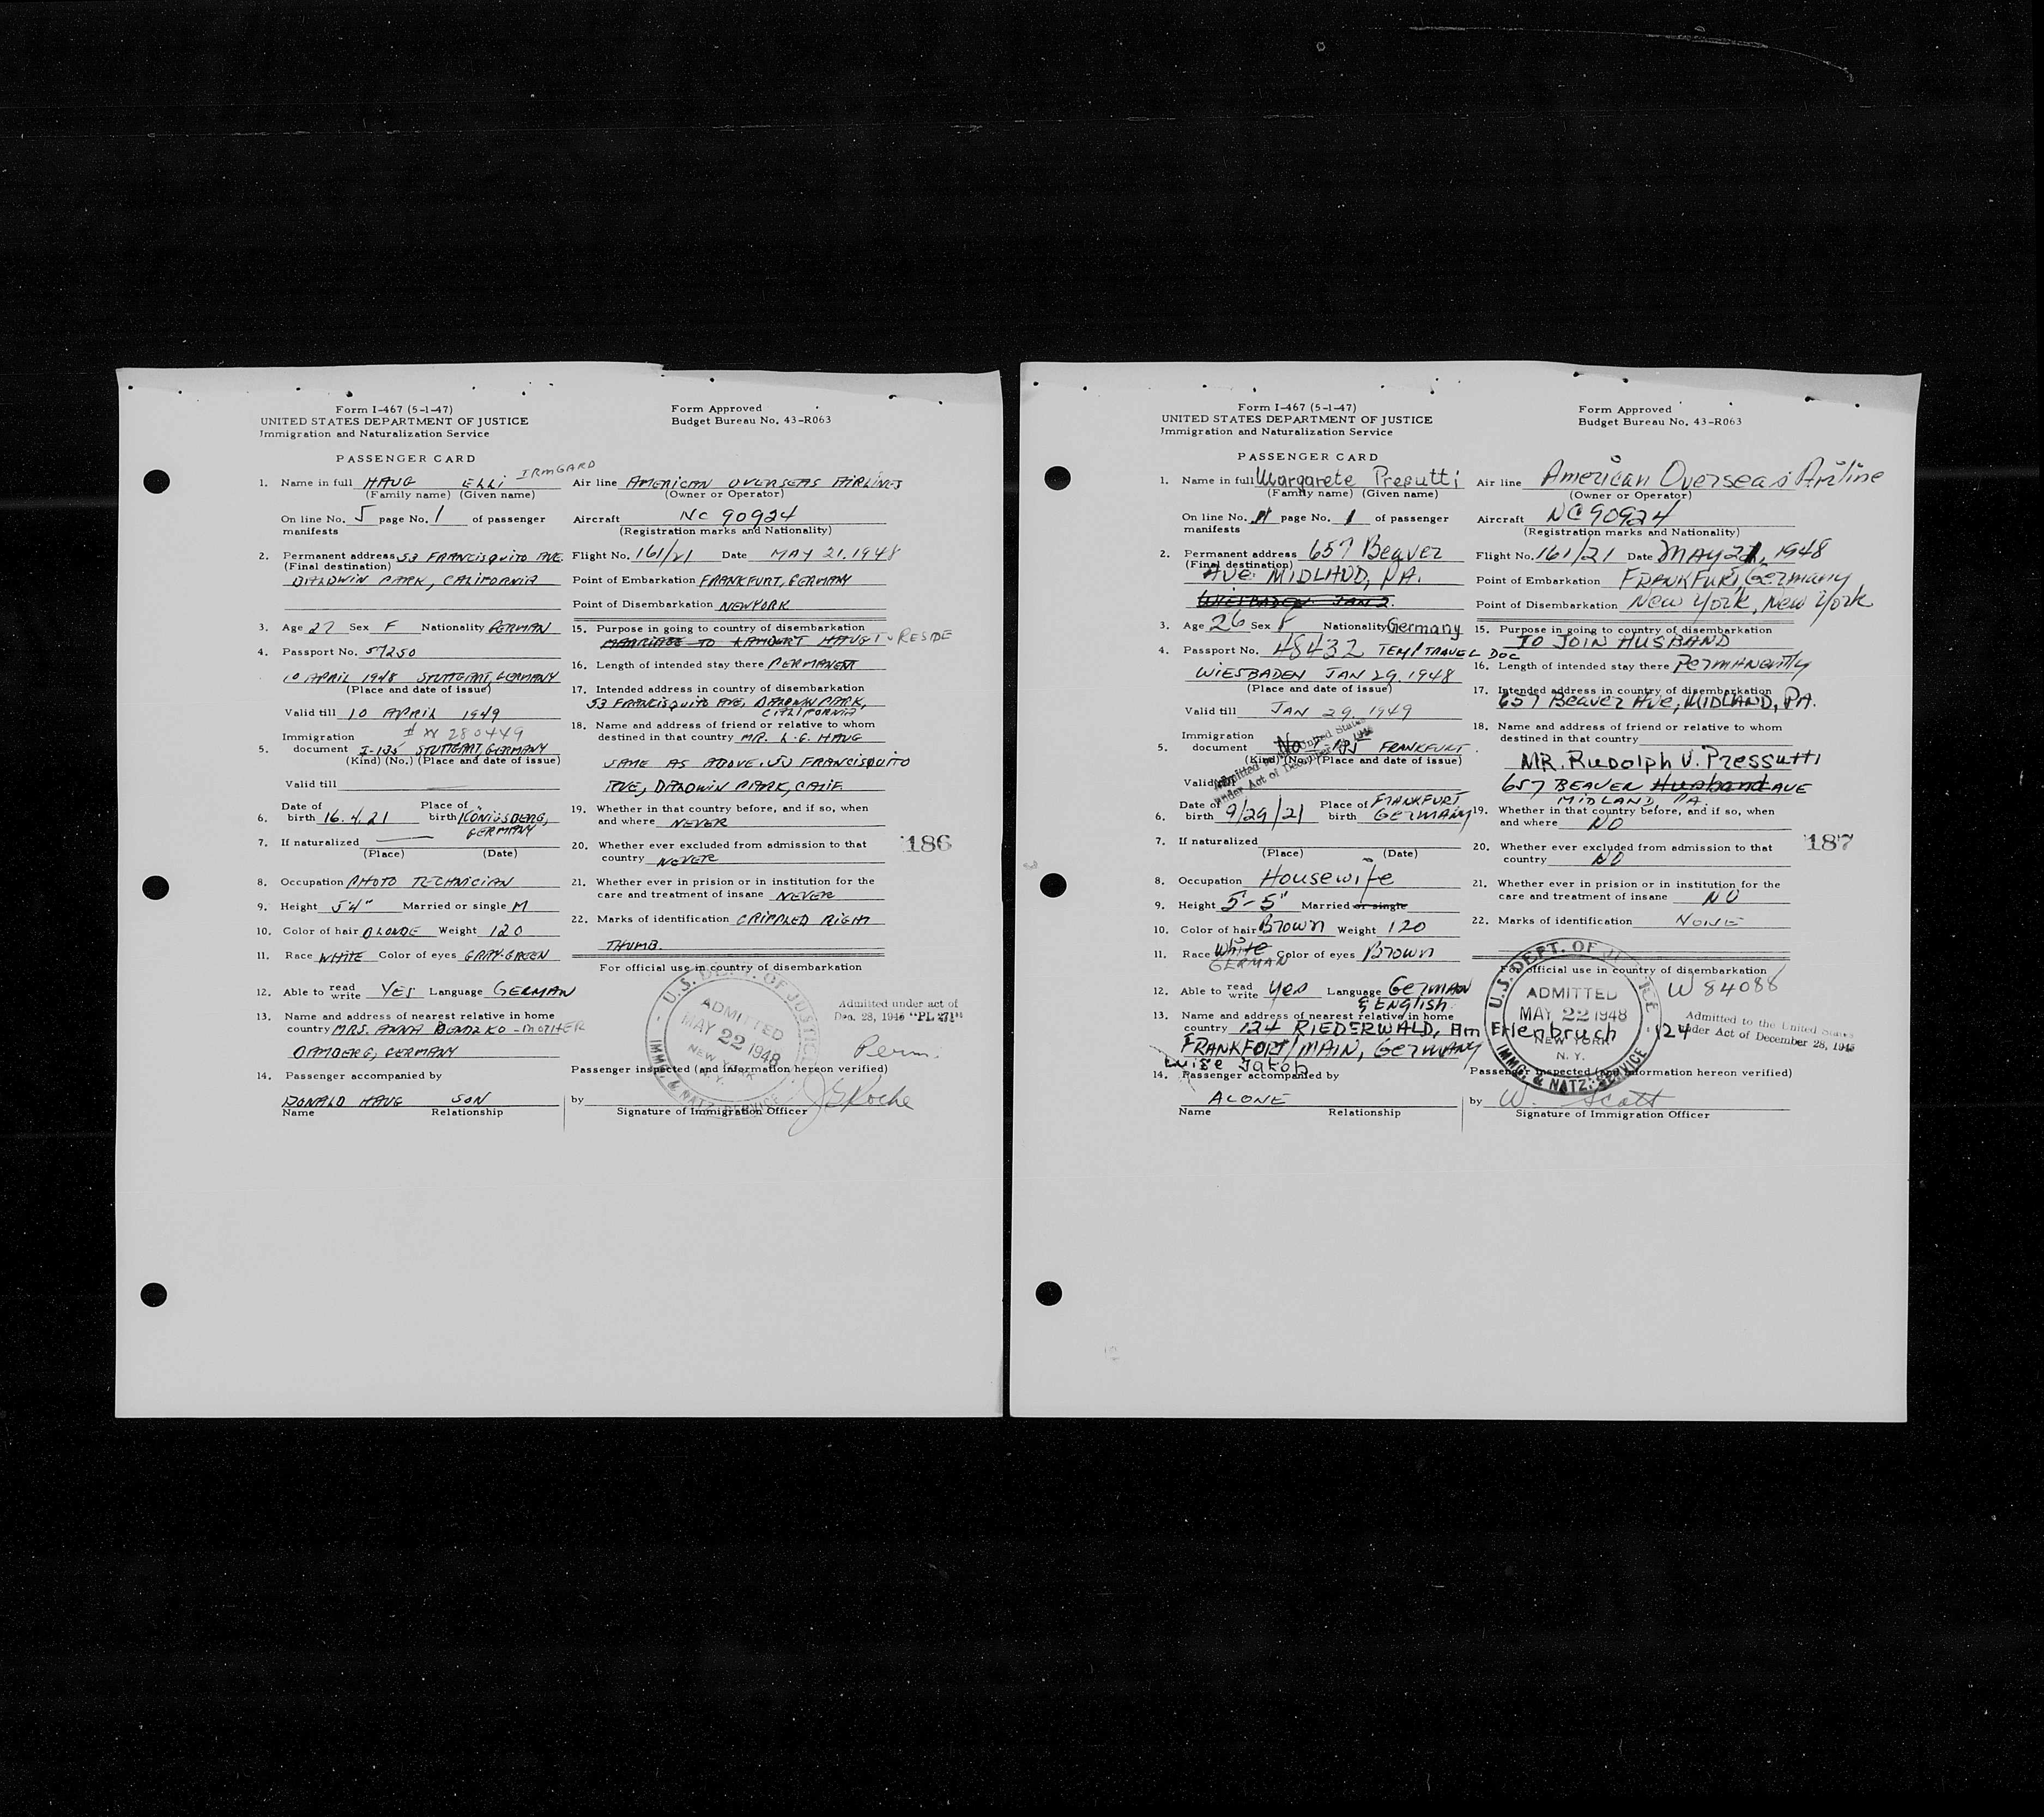 Form I-467 (5-1-47)
UNITED STATES DEPARTMENT OF JUSTICE
Immigration and Naturalization Service
Form Approved
Budget Bureau No. 43-R063
PASSENGER CARD
1. Name in full HAUG ELLI IRMGARD
(Family name) (Given name)
On line No. 5 page No. 1 of passenger
manifests
2. Permanent address 53 FRANCISQUITO AVE.
(Final destination)
BALDWIN PARK, CALIFORNIA
3. Age 27 Sex F Nationality GERMAN
4. Passport No. 57250
10 APRIL 1948 STUTTGART, GERMANY
(Place and date of issue)
Valid till 10 APRIL 1949
Immigration 280449
5. document I-135 STUTTGART, GERMANY
(Kind) (No.) (Place and date of issue)
Valid till
Date of Place of
6. birth 16.4.21 birth KÖNIGSBERG,
GERMANY
7. If naturalized
(Place) (Date)
8. Occupation PHOTO TECHNICIAN
9. Height 5'4" Married or single M
10. Color of hair BLONDE Weight 120
11. Race WHITE Color of eyes GRAY-GREEN
12. Able to read write YES Language GERMAN
13. Name and address of nearest relative in home
country MRS. ANNA - MOTHER
BAMBERG, GERMANY
14. Passenger accompanied by
RONALD HAUG SON
Name Relationship
Air line AMERICAN OVERSEAS AIRLINES
(Owner or Operator)
Aircraft NC 90924
(Registration marks and Nationality)
Flight No. 161/21 Date MAY 21, 1948
Point of Embarkation FRANKFURT, GERMANY
Point of Disembarkation NEW YORK
15. Purpose in going to country of disembarkation
MARRIAGE TO HAUG TO RESIDE
16. Length of intended stay there PERMANENT
17. Intended address in country of disembarkation
53 FRANCISQUITO AVE, BALDWIN PARK,
CALIFORNIA
18. Name and address of friend or relative to whom
destined in that country MR. L. G. HAUG
SAME AS ABOVE, 53 FRANCISQUITO
AVE, BALDWIN PARK, CALIF.
19. Whether in that country before, and if so, when
and where NEVER
186
20. Whether ever excluded from admission to that
country NEVER
21. Whether ever in prision or in institution for the
care and treatment of insane NEVER
22. Marks of identification CRIPPLED RIGHT
THUMB.
For official use in country of disembarkation
U.S. DEPT. OF JUSTICE
ADMITTED
MAY 22 1948
NEW YORK
N. Y.
IMMG. & NATZ. SERVICE
Admitted under act of
Dec. 28, 1945 "PL 271"
Perm.
Passenger inspected (and information hereon verified)
by J G Roche
Signature of Immigration Officer
Form I-467 (5-1-47)
UNITED STATES DEPARTMENT OF JUSTICE
Immigration and Naturalization Service
Form Approved
Budget Bureau No. 43-R063
PASSENGER CARD
1. Name in full Margarete Presutti
(Family name) (Given name)
On line No. page No. 1 of passenger
manifests
2. Permanent address 657 Beaver
(Final destination)
AVE. MIDLAND, PA.
WIESBADEN JAN 2.
3. Age 26 Sex F Nationality Germany
4. Passport No. 48432 TEMP TRAVEL DOC
WIESBADEN JAN 29. 1948
(Place and date of issue)
Valid till JAN 29. 1949
Immigration
5. document FRANKFURT.
(Kind) (No.) (Place and date of issue)
Admitted to the United States
under Act of December 28, 1945
Valid till
Date of Place of FRANKFURT
6. birth 9/29/21 birth GERMANY
7. If naturalized
(Place) (Date)
8. Occupation Housewife
9. Height 5'-5" Married or single
10. Color of hair Brown Weight 120
11. Race White Color of eyes Brown
GERMAN
12. Able to read write yes Language GERMAN
& ENGLISH.
13. Name and address of nearest relative in home
country 124 RIEDERWALD, Am Erlenbruch 124
FRANKFORT/MAIN, GERMANY
Luise Jakob
14. Passenger accompanied by
ALONE
Name Relationship
Air line American Overseas Airline
(Owner or Operator)
Aircraft NC90924
(Registration marks and Nationality)
Flight No. 161/21 Date MAY 21, 1948
Point of Embarkation FRANKFURT, Germany
Point of Disembarkation New York, New York
15. Purpose in going to country of disembarkation
TO JOIN HUSBAND
16. Length of intended stay there PERMANENTLY
17. Intended address in country of disembarkation
657 Beaver Ave, MIDLAND, PA.
18. Name and address of friend or relative to whom
destined in that country
MR. Rudolph V. Pressutti
657 BEAVER Husband AVE
MIDLAND PA.
19. Whether in that country before, and if so, when
and where NO
187
20. Whether ever excluded from admission to that
country NO
21. Whether ever in prision or in institution for the
care and treatment of insane NO
22. Marks of identification NONE
For official use in country of disembarkation
W 84088
U.S. DEPT. OF JUSTICE
ADMITTED
MAY 22 1948
NEW YORK
N. Y.
IMMG. & NATZ. SERVICE
Admitted to the United States
under Act of December 28, 1945
Passenger inspected (and information hereon verified)
by W. Scott
Signature of Immigration Officer